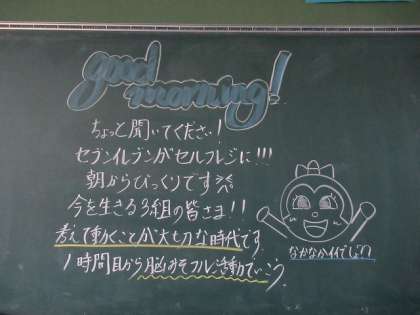 good
morning!
ちょっと聞いてください!
セブンイレブンがセルフレジに!!!
朝からびっくりです
今を生きる3組の皆さま!!
考えて動くことが大切な時代です
1時間目から脳みそフル活動でいこう
なかなかイイでしょ??